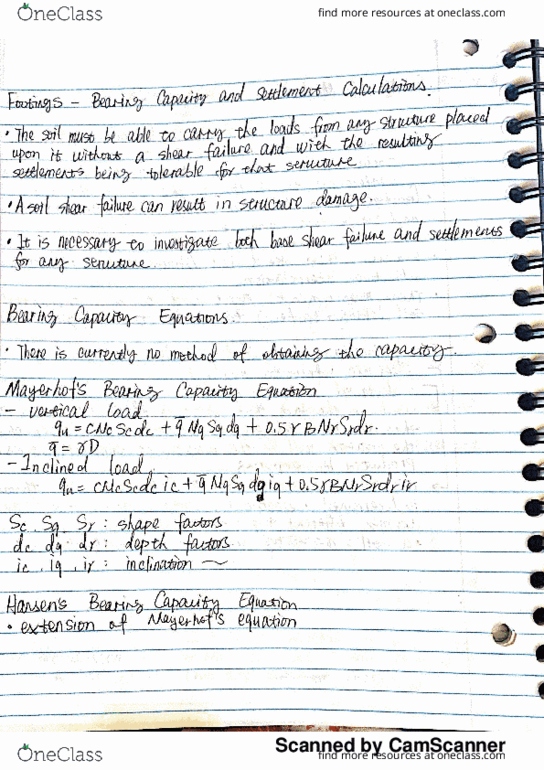 OneClass
find more resources at oneclass.com
Footings – Bearing Capacity and Settlement Calculations.
• The soil must be able to carry the loads from any structure placed
upon it without a shear failure and with the resulting
settlements being tolerable for that structure
• A soil shear failure can result in structure damage.
• It is necessary to investigate both base shear failure and settlements
for any structure
Bearing Capacity Equations.
• There is currently no method of obtaining the capacity.
Mayerhof's Bearing Capacity Equation
– vertical load
qu = cNcScdc + q̄ NqSqdq + 0.5rBNrSrdr.
q̄ = rD
– Inclined load
qu = cNcScdc ic + q̄ NqSq dq iq + 0.5rBNrSrdrir
Sc Sq Sr : shape factors
dc dq dr : depth factors
ic . iq . ir : inclination ~
Hansen's Bearing Capacity Equation
• extension of Mayerhof's equation
Scanned by CamScanner
OneClass
find more resources at oneclass.com